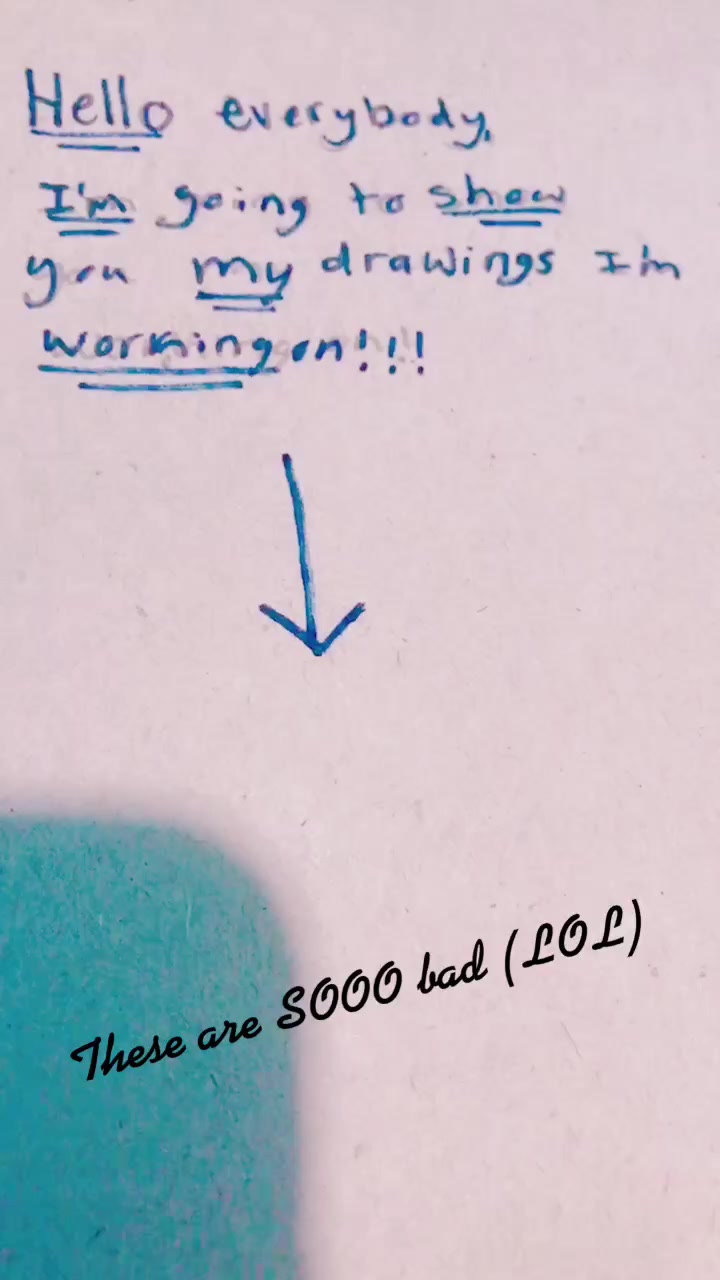 Hello everybody,
I'm going to show
you my drawings I'm
working on!!!
These are SOOO bad (LOL)